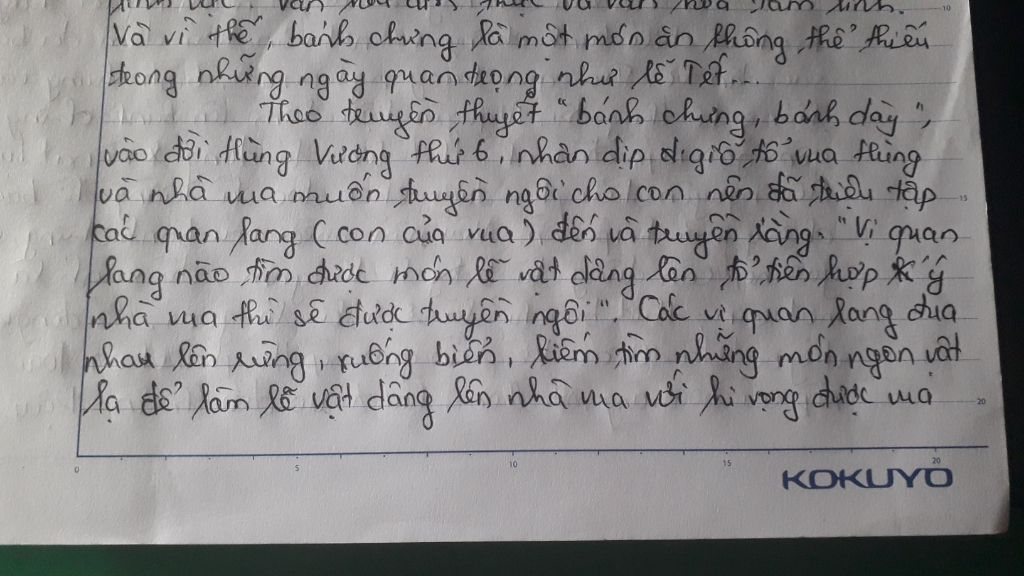 văn hóa ẩm thực và văn hóa tâm linh.
Và vì thế, bánh chưng là một món ăn không thể thiếu
trong những ngày quan trọng như lễ Tết...
Theo truyền thuyết "bánh chưng, bánh dày",
vào đời Hùng Vương thứ 6, nhân dịp giỗ tổ vua Hùng
và nhà vua muốn truyền ngôi cho con nên đã triệu tập
các quan lang (con của vua) đến và truyền rằng. "Vị quan
lang nào tìm được món lễ vật dâng lên tổ tiên hợp ý
nhà vua thì sẽ được truyền ngôi". Các vị quan lang đua
nhau lên rừng, xuống biển, kiếm tìm những món ngon vật
lạ để làm lễ vật dâng lên nhà vua với hi vọng được vua
10
15
20
0 5 10 15 20
KOKUYO